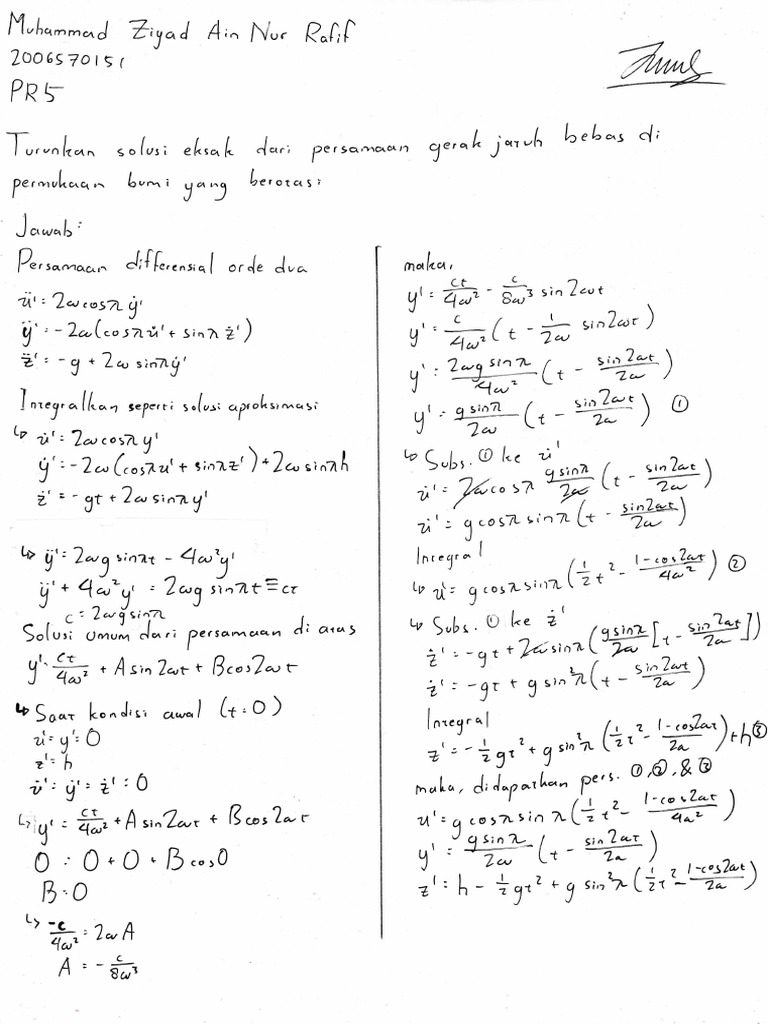 Muhammad Ziyad Ain Nur Rafif
2006570151
PR5
Turunkan solusi eksak dari persamaan gerak jatuh bebas di
permukaan bumi yang berotasi
Jawab:
Persamaan differensial orde dua
ü' = 2ω cosλ ẏ'
ÿ' = -2ω(cosλ u̇' + sinλ ż')
z̈' = -g + 2ω sinλ ẏ'
Integralkan seperti solusi aproksimasi
↳ u̇' = 2ω cosλ y'
ẏ' = -2ω(cosλ u' + sinλ z') + 2ω sinλ h
ż' = -gt + 2ω sinλ y'
↳ ÿ' = 2ωg sinλt - 4ω²y'
ÿ' + 4ω²y' = 2ωg sinλt ≡ ct
c = 2ωg sinλ
Solusi umum dari persamaan di atas
y' = ct/4ω² + A sin2ωt + B cos2ωt
↳ Saat kondisi awal (t=0)
u' = y' = 0
z' = h
u̇' = ẏ' = ż' = 0
↳ y' = ct/4ω² + A sin2ωt + B cos2ωt
0 = 0 + 0 + B cos0
B = 0
↳ -c/4ω² = 2ωA
A = -c/8ω³
maka,
y' = ct/4ω² - c/8ω³ sin2ωt
y' = c/4ω² (t - 1/2ω sin2ωt)
y' = 2ωg sinλ/4ω² (t - sin2ωt/2ω)
y' = g sinλ/2ω (t - sin2ωt/2ω) ①
↳ Subs. ① ke u̇'
u̇' = 2ω cosλ g sinλ/2ω (t - sin2ωt/2ω)
u̇' = g cosλ sinλ (t - sin2ωt/2ω)
Integral
↳ u' = g cosλ sinλ (1/2 t² - 1-cos2ωt/4ω²) ②
↳ Subs. ① ke ż'
ż' = -gt + 2ω sinλ (g sinλ/2ω [t - sin2ωt/2ω])
ż' = -gt + g sin²λ (t - sin2ωt/2ω)
Integral
z' = -1/2 gt² + g sin²λ (1/2 t² - 1-cos2ωt/2ω) + h ③
maka, didapatkan pers. ①,②, & ③
u' = g cosλ sinλ (1/2 t² - 1-cos2ωt/4ω²)
y' = g sinλ/2ω (t - sin2ωt/2ω)
z' = h - 1/2 gt² + g sin²λ (1/2 t² - 1-cos2ωt/2ω)